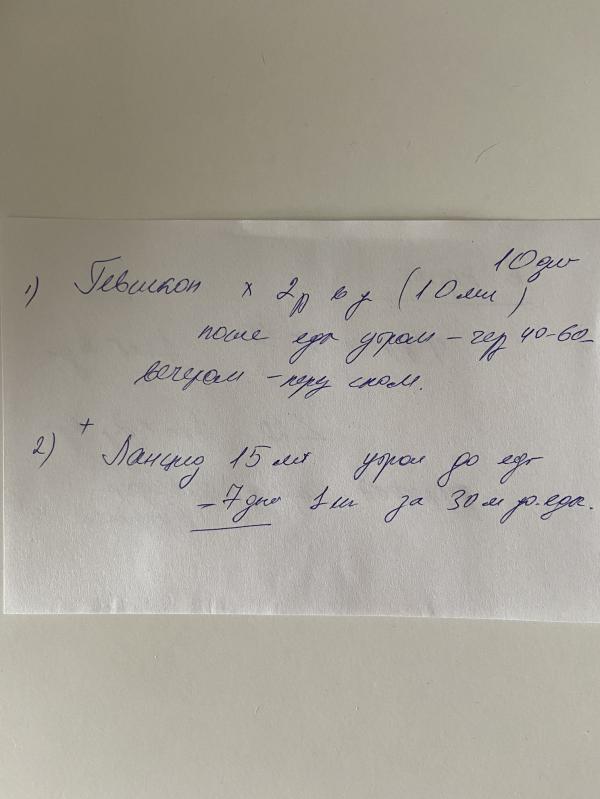 10 дн
1) Гевискон х 2 р в д (10 мл)
после еды утром – чер 40-60
вечером – перд сном.
+
2) Ланцид 15 мг утром до еды
– 7 дней 1 кп за 30 м до еды.